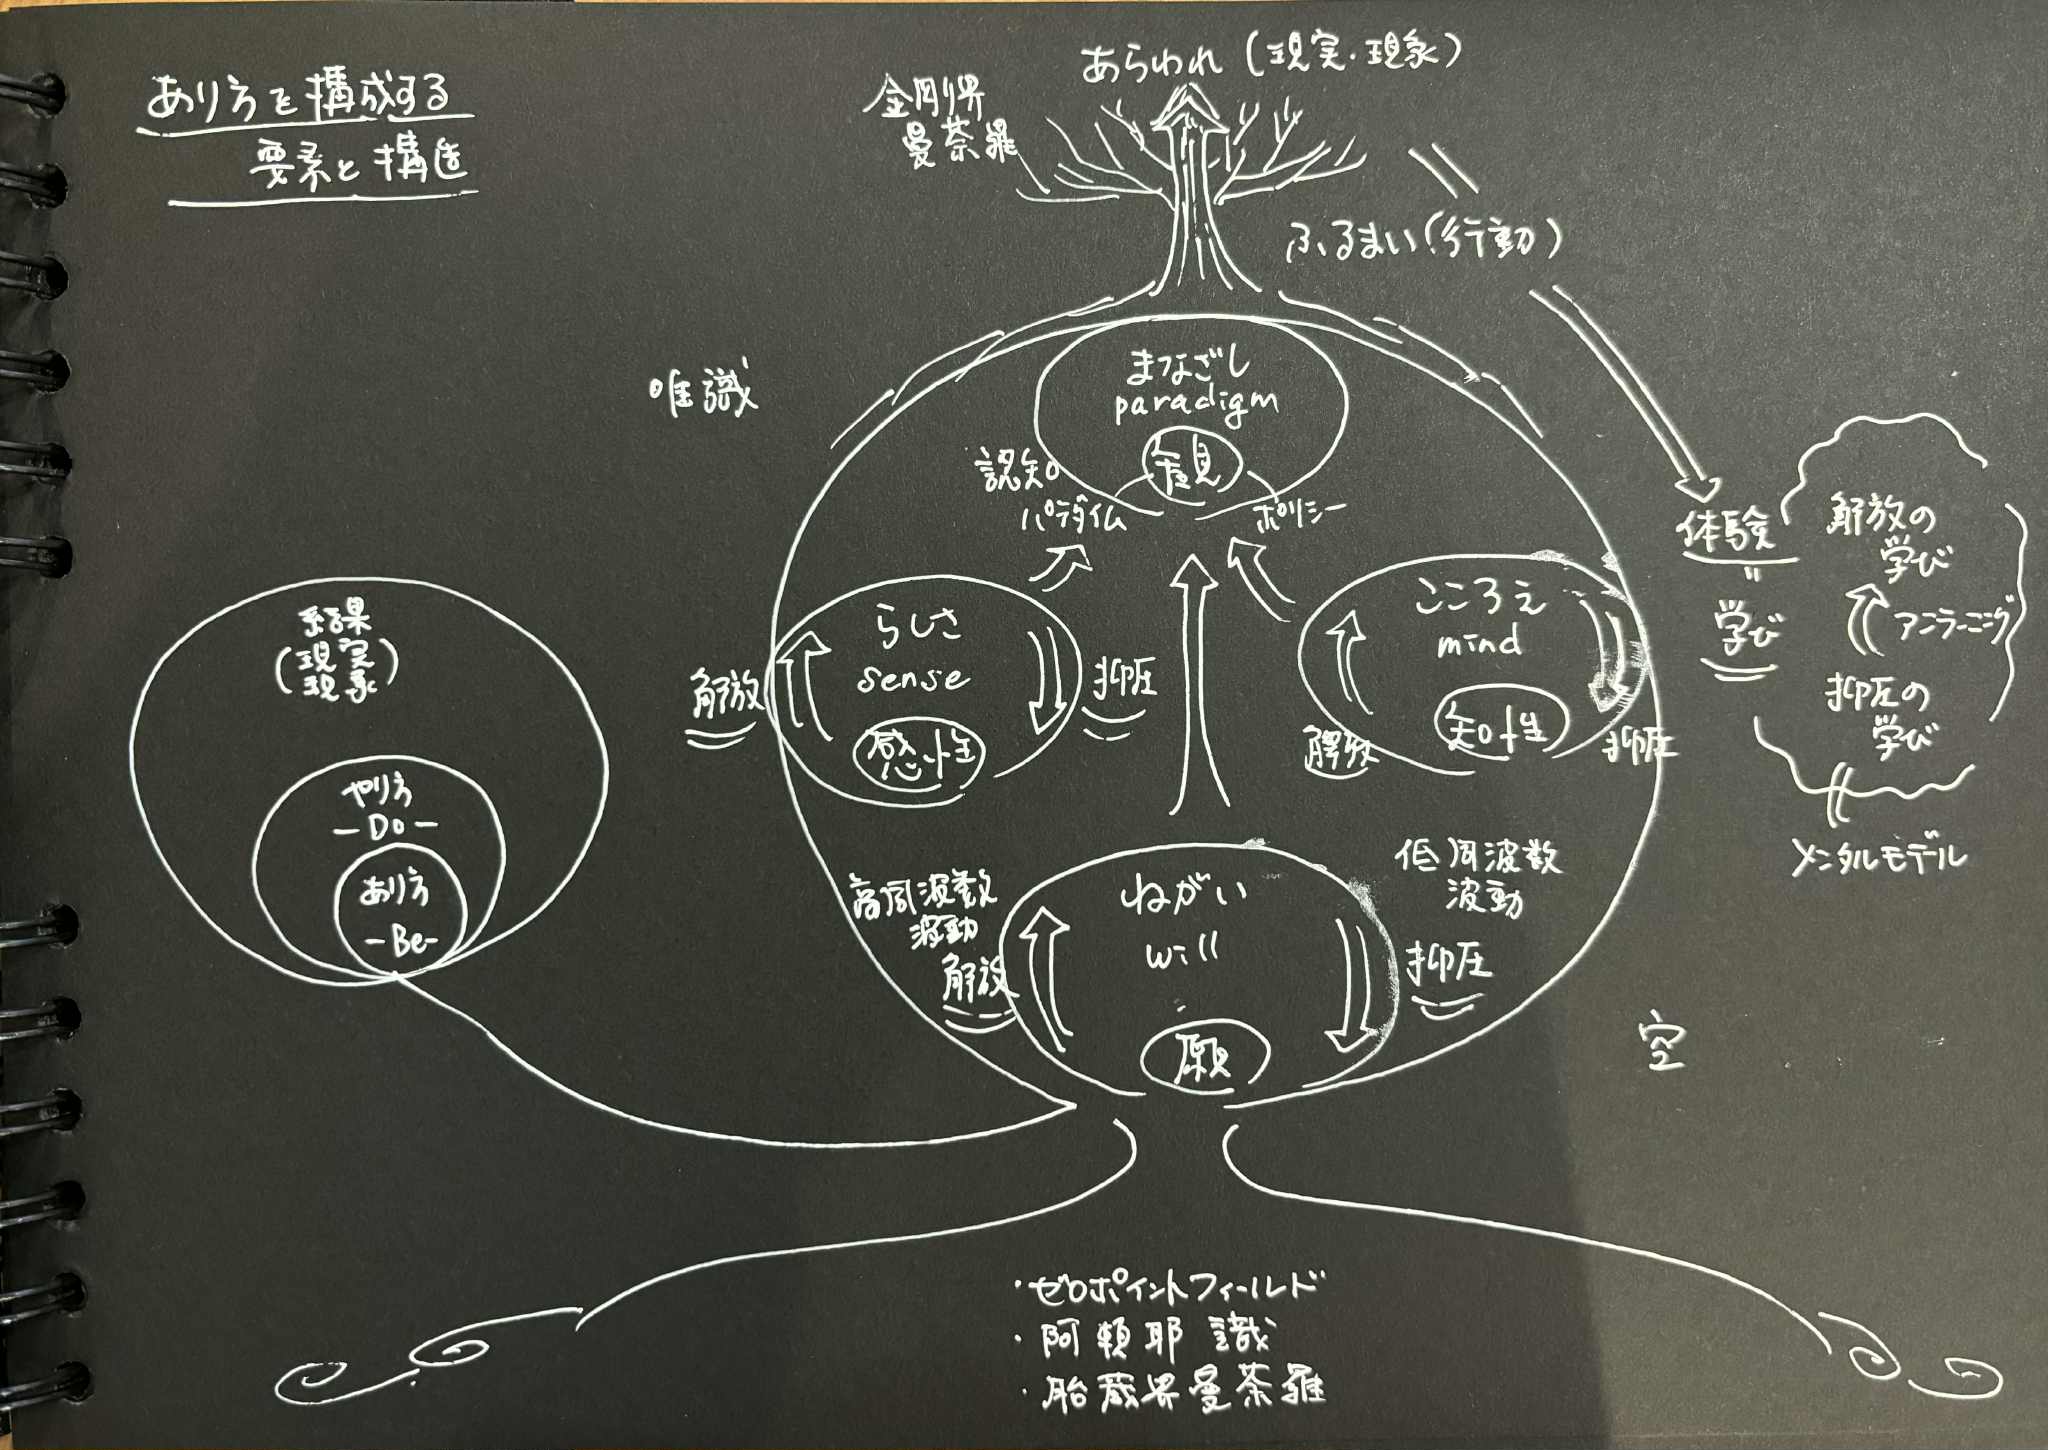 あり方を構成する
要素と構造
あらわれ (現実・現象)
金剛界
曼荼羅
ふるまい(行動)
唯識
まなざし
paradigm
認知
パラダイム
ポリシー
らしさ
sense
感性
解放
抑圧
こころえ
mind
知性
解放
抑圧
体験
〃
学び
解放の
学び
アンラーニング
抑圧の
学び
メンタルモデル
結果
(現実
現象)
やり方
-Do-
あり方
-Be-
高周波数
波動
解放
ねがい
will
願
低周波数
波動
抑圧
空
・ゼロポイントフィールド
・阿頼耶識
・胎蔵界曼荼羅